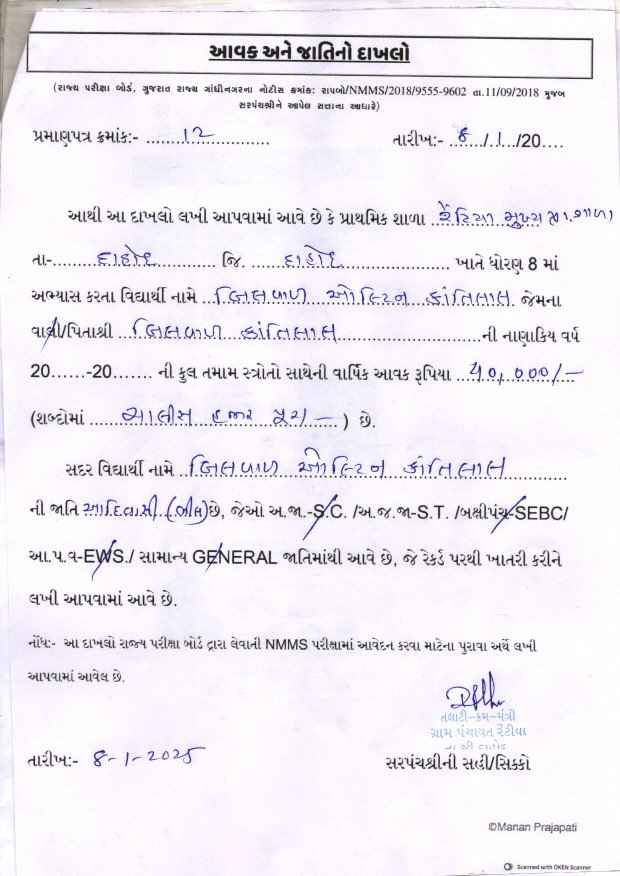 આવક અને જાતિનો દાખલો
(રાજ્ય પરીક્ષા બોર્ડ, ગુજરાત રાજ્ય ગાંધીનગરના નોટીસ ક્રમાંક: રાપબો/NMMS/2018/9555-9602 તા.11/09/2018 મુજબ
સરપંચશ્રીને આપેલ સત્તાના આધારે)
પ્રમાણપત્ર ક્રમાંક:- ......12...... તારીખ:- ..8../.1../20....
આથી આ દાખલો લખી આપવામાં આવે છે કે પ્રાથમિક શાળા રેંટિયા મુખ્ય પ્રા.શાળા
તા-......દાહોદ...... જિ. ......દાહોદ...... ખાતે ધોરણ 8 માં
અભ્યાસ કરતા વિદ્યાર્થી નામે ..બિલવાળ ઓસ્ટિન કાંતિલાલ. જેમના
વાલી/પિતાશ્રી ..બિલવાળ કાંતિલાલ......ની નાણાકિય વર્ષ
20......-20....... ની કુલ તમામ સ્ત્રોતો સાથેની વાર્ષિક આવક રૂપિયા ..40,000/-
(શબ્દોમાં ......ચાલીસ હજાર પૂરા -... ) છે.
સદર વિદ્યાર્થી નામે ..બિલવાળ ઓસ્ટિન કાંતિલાલ......
ની જાતિ આદિવાસી.(ભીલ)છે, જેઓ અ.જા.-S.C. /અ.જ.જા-S.T. /બક્ષીપંચ-SEBC/
આ.પ.વ-EWS./ સામાન્ય GENERAL જાતિમાંથી આવે છે, જે રેકર્ડ પરથી ખાતરી કરીને
લખી આપવામાં આવે છે.
નોંધ:- આ દાખલો રાજ્ય પરીક્ષા બોર્ડ દ્વારા લેવાતી NMMS પરીક્ષામાં આવેદન કરવા માટેના પુરાવા અર્થે લખી
આપવામાં આવેલ છે.
તલાટી-કમ-મંત્રી
ગ્રામ પંચાયત રેંટીયા
તારીખ:- 8-1-2025
સરપંચશ્રીની સહી/સિક્કો
©Manan Prajapati
Scanned with OKEN Scanner